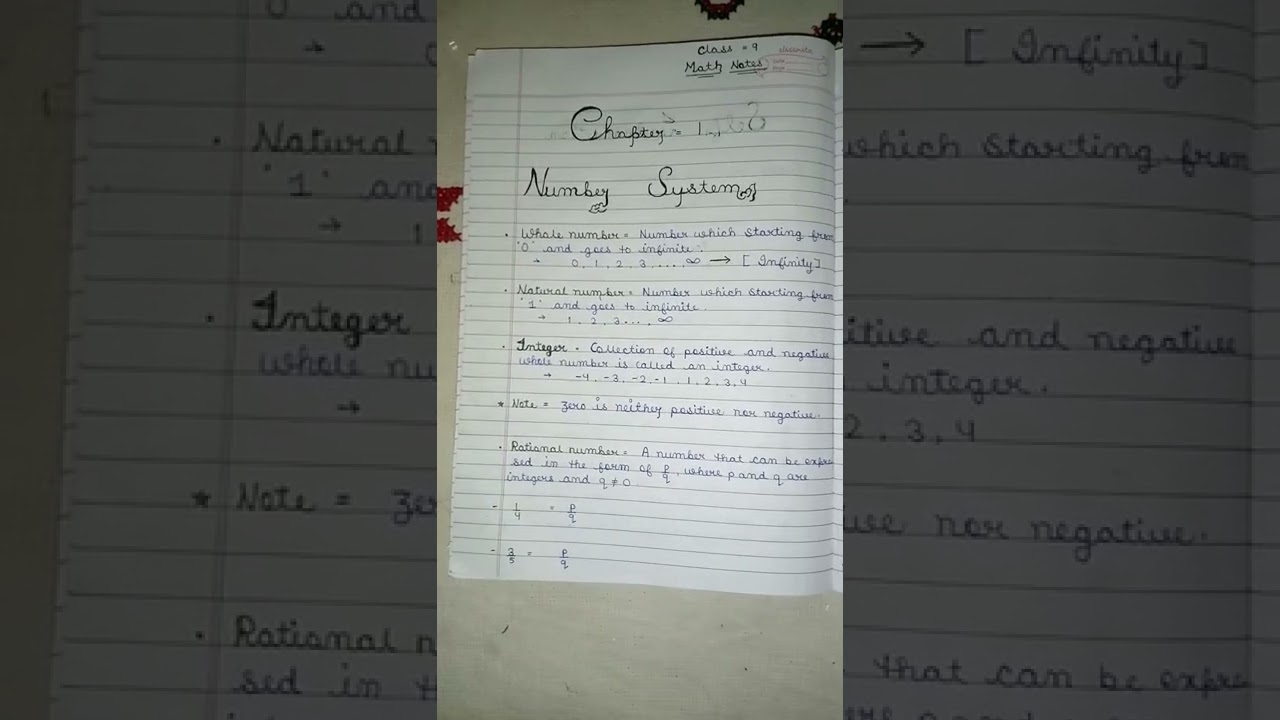 Class = 9
Math Notes
Chapter = 1
Number System
• Whole number = Number which starting from
'0' and goes to infinite.
→ 0, 1, 2, 3 ...., ∞ → [ Infinity]
• Natural number = Number which starting from
'1' and goes to infinite.
→ 1, 2, 3..., ∞
• Integer = Collection of positive and negative
whole number is called an integer.
→ -4, -3, -2, -1, 1, 2, 3, 4
* Note = Zero is neither positive nor negative.
• Rational number = A number that can be expre
sed in the form of p/q, where p and q are
integers and q ≠ 0.
- 1/4 = p/q
- 3/5 = p/q